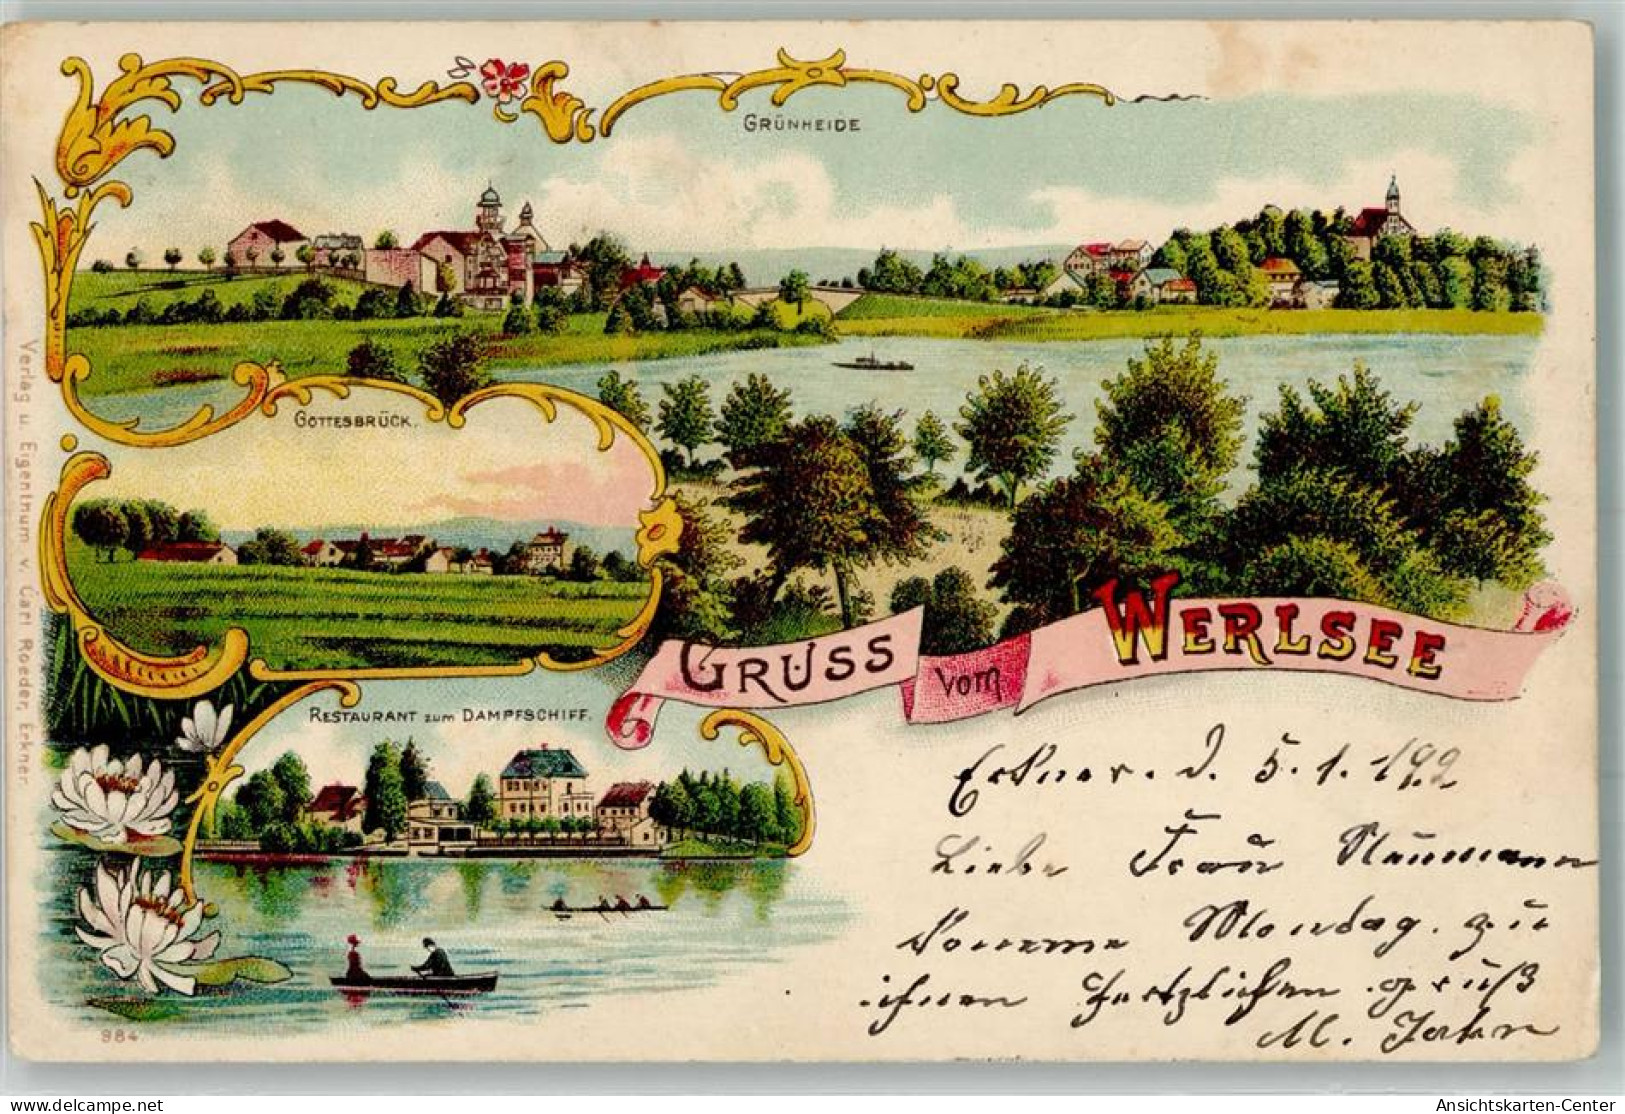 GRÜNHEIDE
GOTTESBRÜCK.
GRUSS vom WERLSEE
RESTAURANT zum DAMPFSCHIFF.
Erkner. d. 5.1.192
Liebe Frau Naumann
komme Mondag. zu
ihnen Hertzlichen gruß
M. Jahn
Verlag u. Eigenthum v. Carl Roeder, Erkner.
984.
delcampe.net
Ansichtskarten-Center